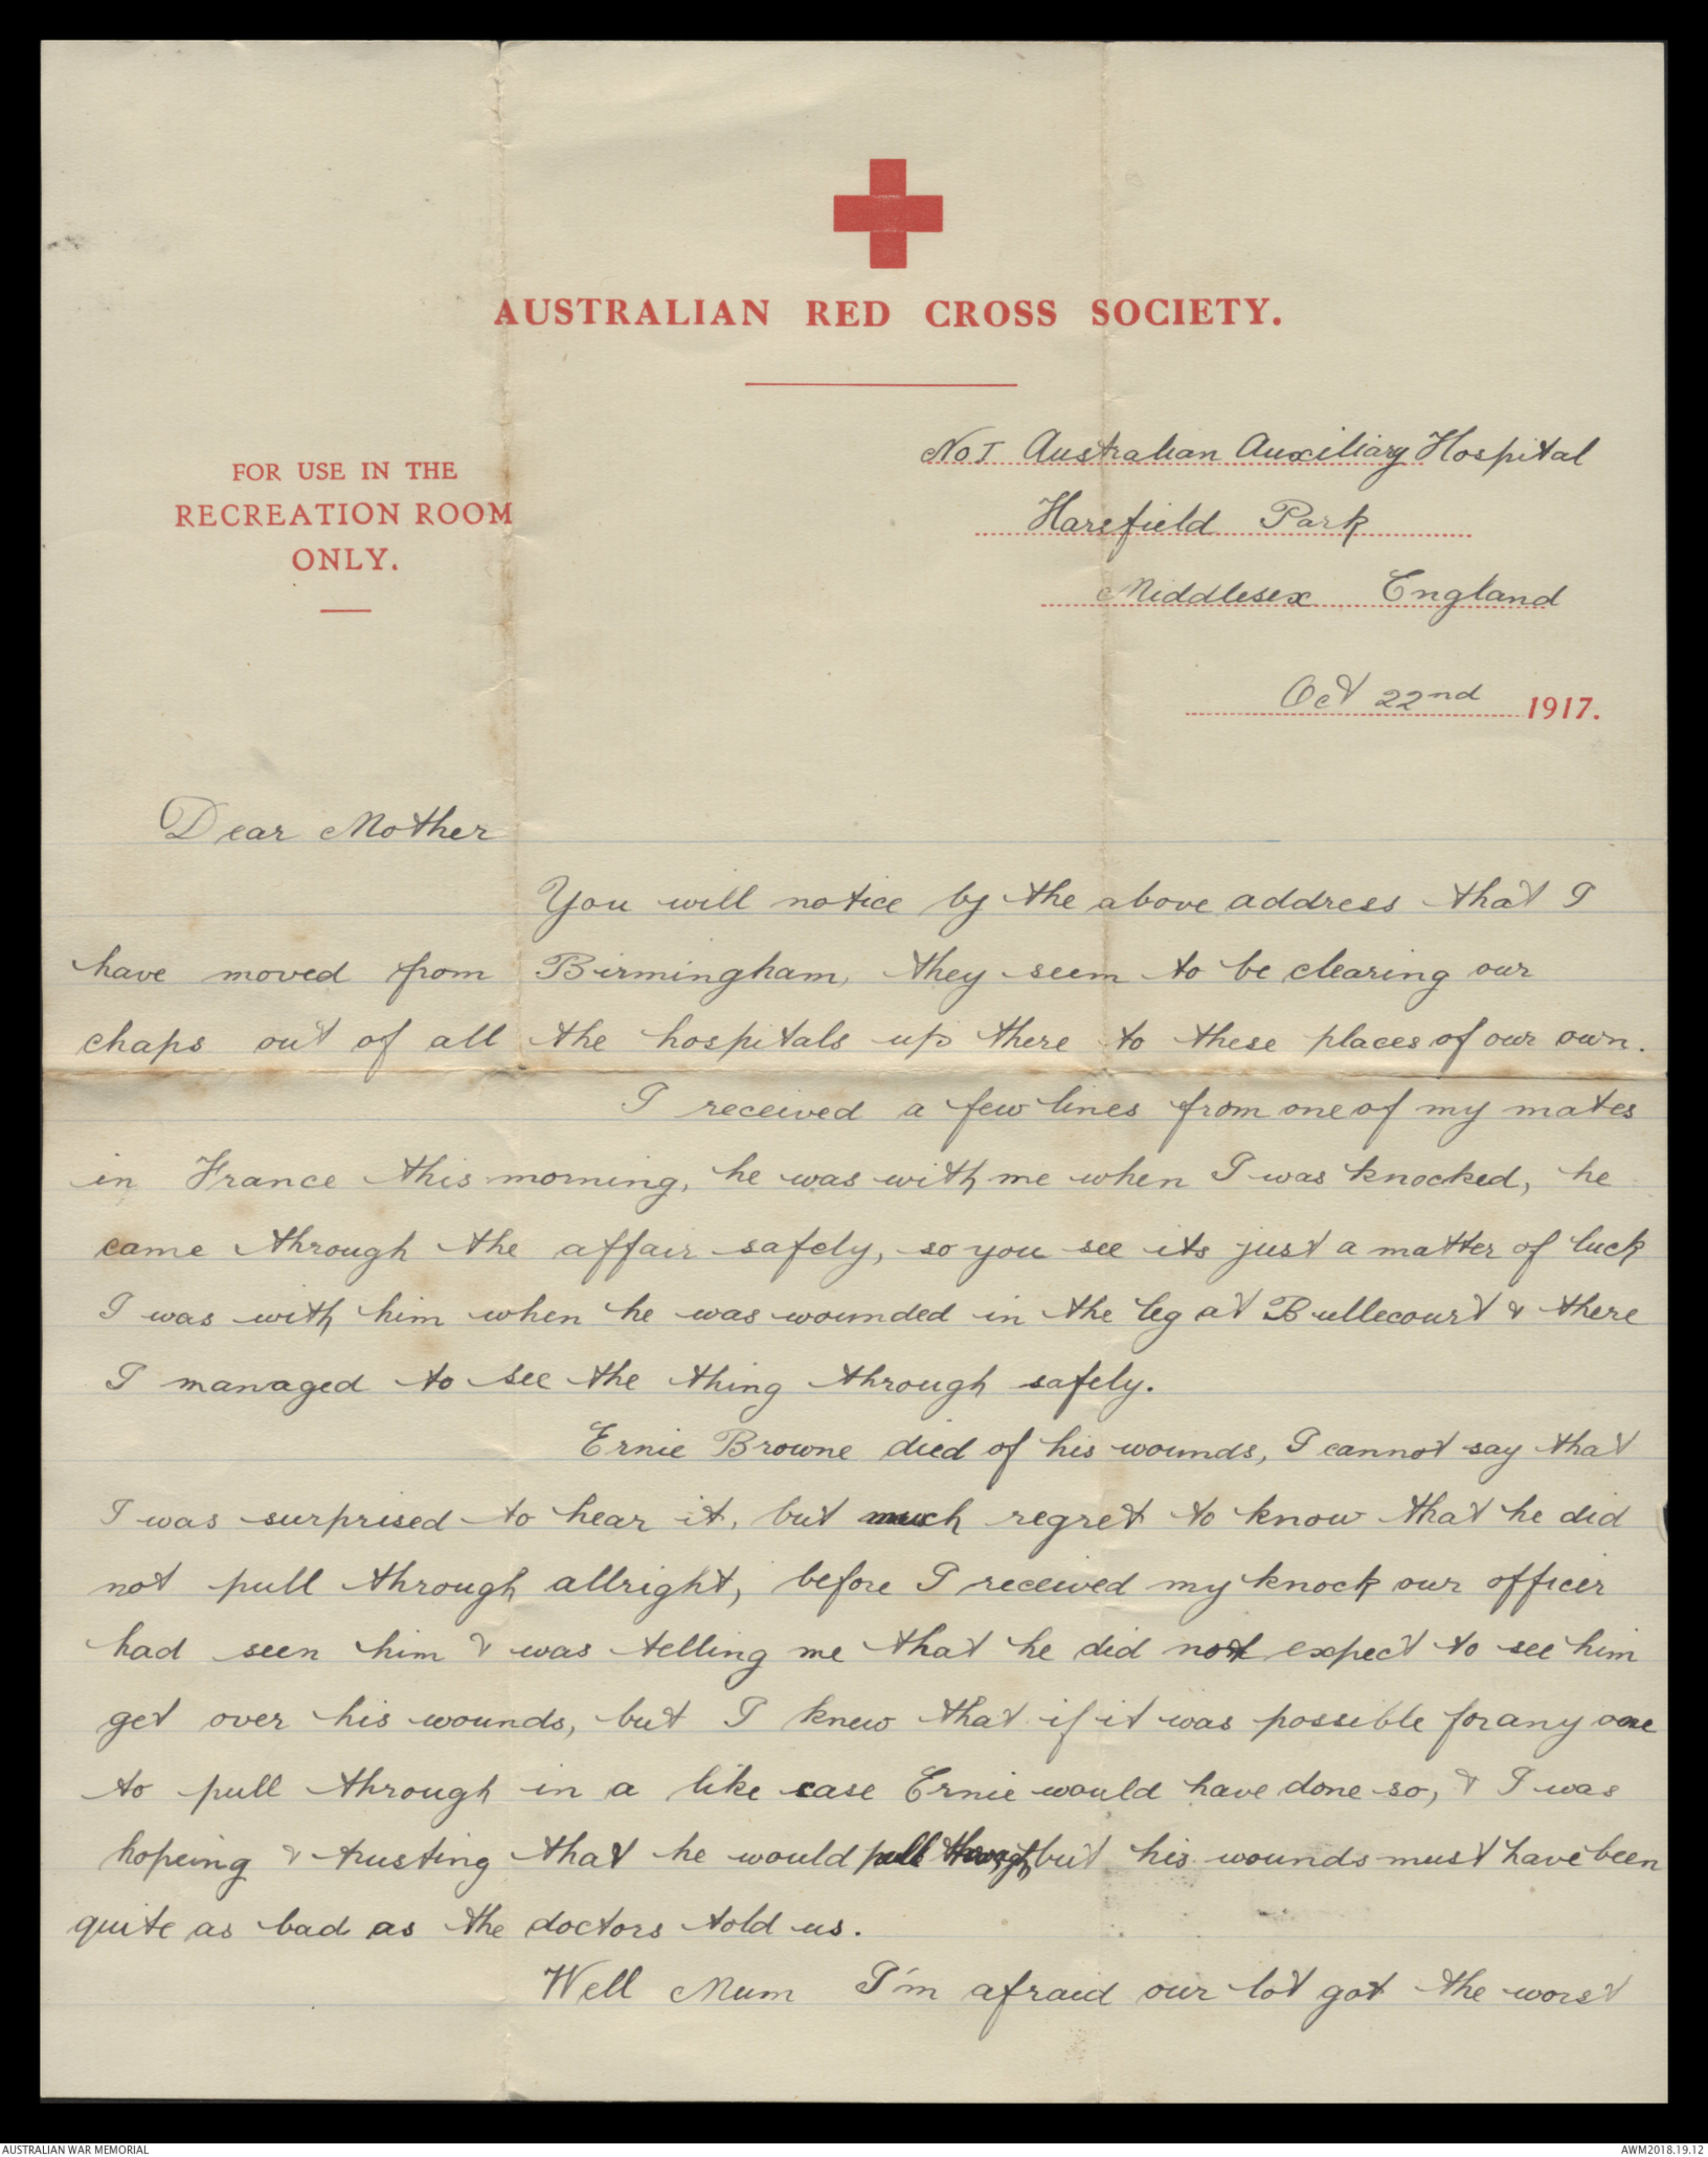 AUSTRALIAN RED CROSS SOCIETY.
FOR USE IN THE
RECREATION ROOM
ONLY.
No I Australian Auxiliary Hospital
Harefield Park
Middlesex England
Oct 22nd 1917.
Dear Mother
You will notice by the above address that I
have moved from Birmingham, they seem to be clearing our
chaps out of all the hospitals up there to these places of our own.
I received a few lines from one of my mates
in France this morning, he was with me when I was knocked, he
came through the affair safely, so you see its just a matter of luck
I was with him when he was wounded in the leg at Bullecourt & there
I managed to see the thing through safely.
Ernie Browne died of his wounds, I cannot say that
I was surprised to hear it, but much regret to know that he did
not pull through allright, before I received my knock our officer
had seen him & was telling me that he did not expect to see him
get over his wounds, but I knew that if it was possible for any one
to pull through in a like case Ernie would have done so, & I was
hopeing & trusting that he would pull through but his wounds must have been
quite as bad as the doctors told us.
Well Mum I'm afraid our lot got the worst
AUSTRALIAN WAR MEMORIAL
AWM2018.19.12